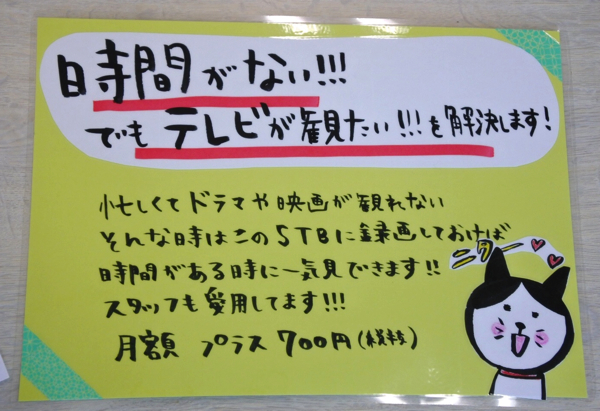 時間がない!!!
でもテレビが観たい!!!を解決します!
忙しくてドラマや映画が観れない
そんな時はこのSTBに録画しておけば
時間がある時に一気見できます!!
スタッフも愛用してます!!!
月額 プラス700円(税抜)
ニター